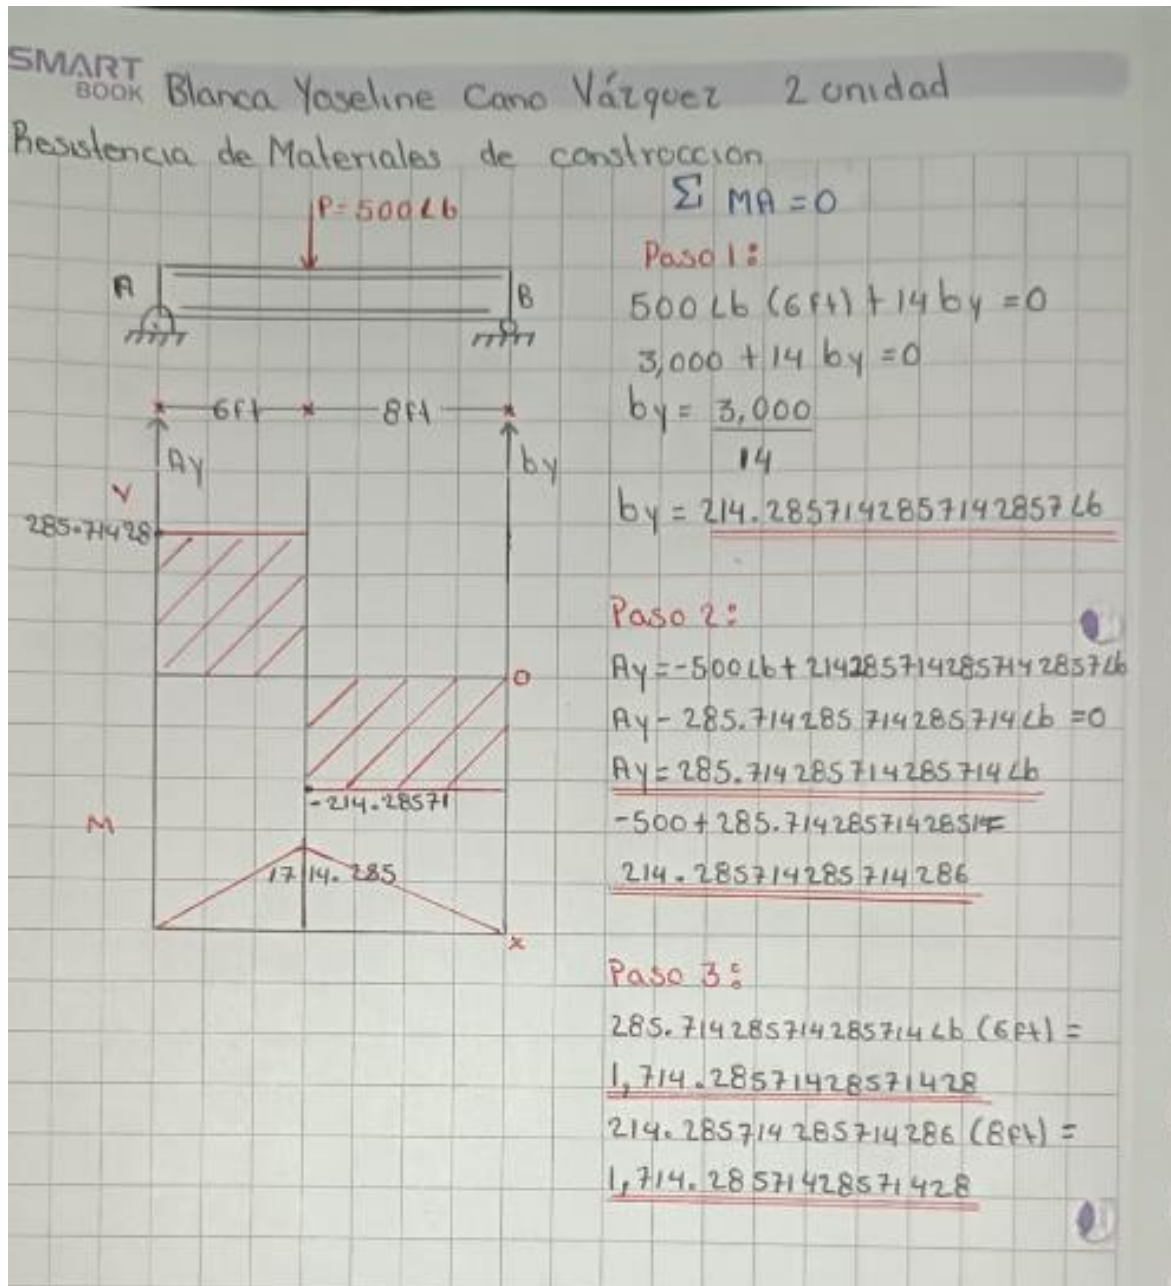 SMART
BOOK
Blanca Yaseline Cano Vázquez 2 unidad
Resistencia de Materiales de construccion
P=500Lb
A
B
6ft
8ft
Ay
by
V
285.71428
0
-214.28571
M
1714.285
x
Σ MA=0
Paso 1:
500 Lb (6ft) + 14 by =0
3,000 + 14 by =0
by = 3,000
14
by = 214.2857142857142857 Lb
Paso 2:
Ay=-500Lb+2142857142857142857Lb
Ay-285.714285714285714Lb =0
Ay=285.714285714285714Lb
-500+285.71428571428514=
214.285714285714286
Paso 3:
285.714285714285714Lb (6ft) =
1,714.28571428571428
214.285714285714286 (8ft) =
1,714.28571428571428